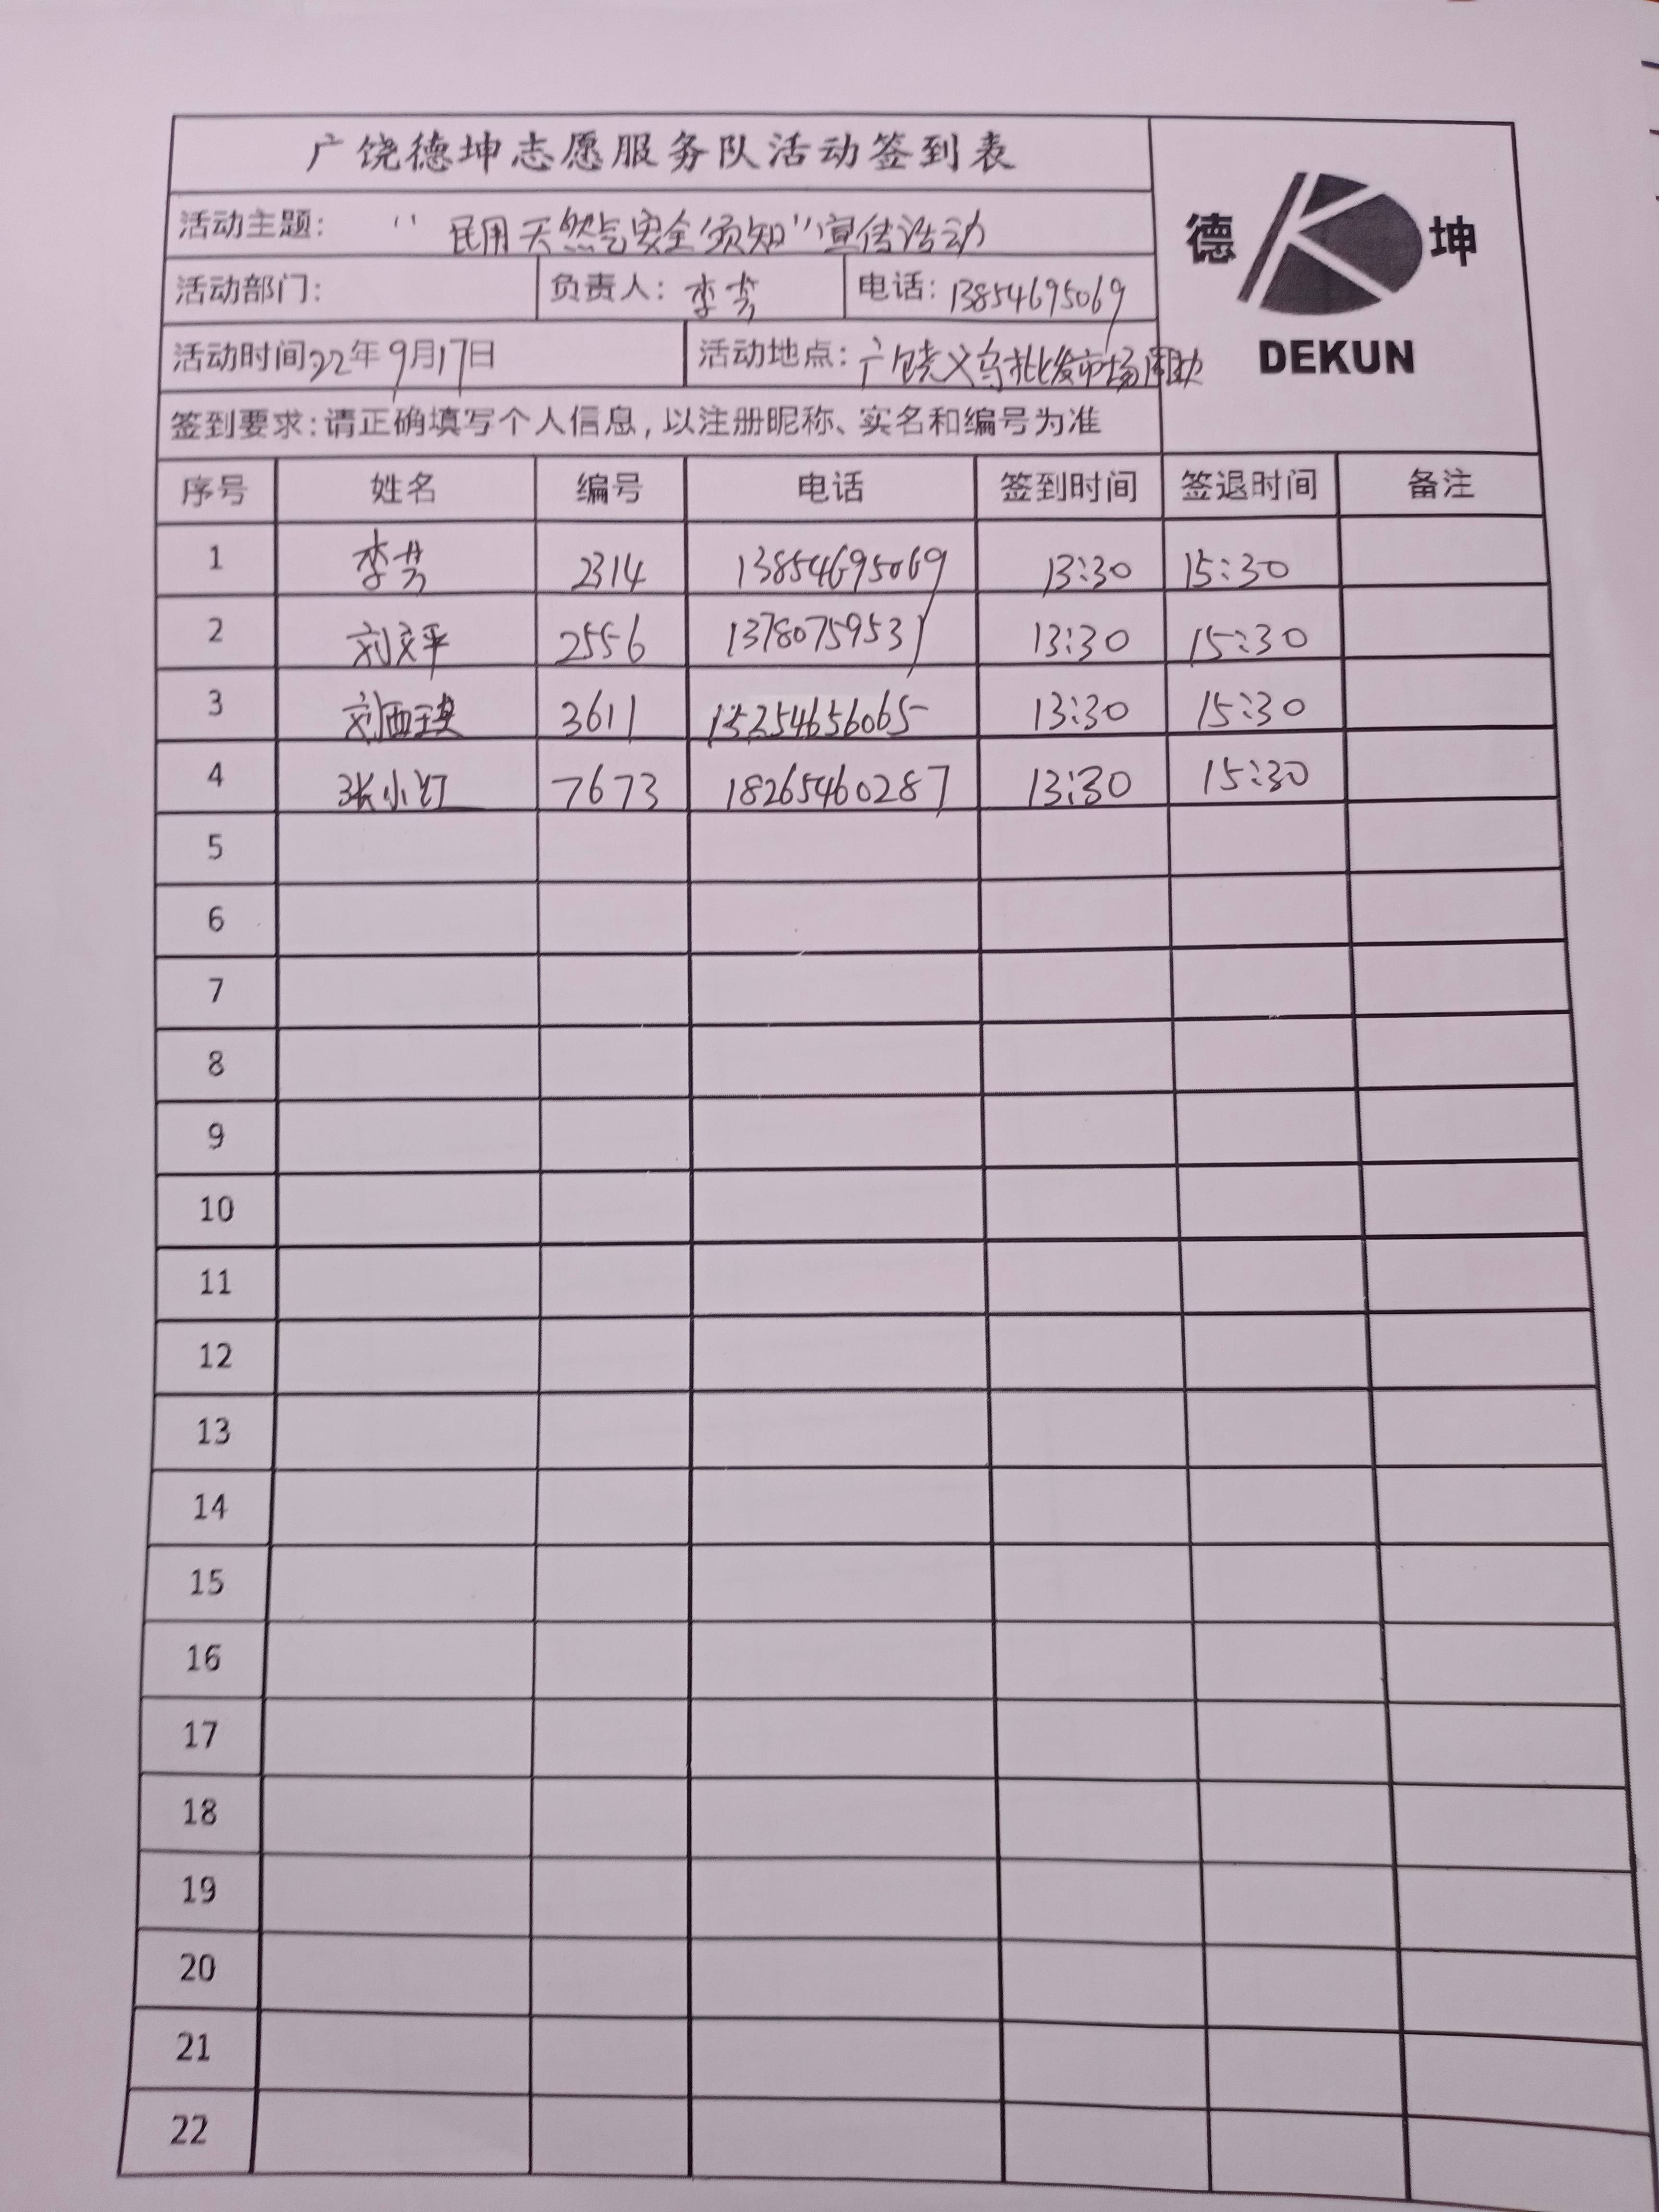 广饶德坤志愿服务队活动签到表
活动主题: "民用天然气安全须知"宣传活动
德 坤
活动部门: 负责人: 李芳 电话: 13854695069
活动时间22年9月17日 活动地点: 广饶义乌批发市场周边
DEKUN
签到要求:请正确填写个人信息,以注册昵称、实名和编号为准
序号 姓名 编号 电话 签到时间 签退时间 备注
1 李芳 2314 13854695069 13:30 15:30
2 刘文平 2556 13780759531 13:30 15:30
3 刘西瑛 3611 15254656065 13:30 15:30
4 张小灯 7673 18265460287 13:30 15:30
5
6
7
8
9
10
11
12
13
14
15
16
17
18
19
20
21
22